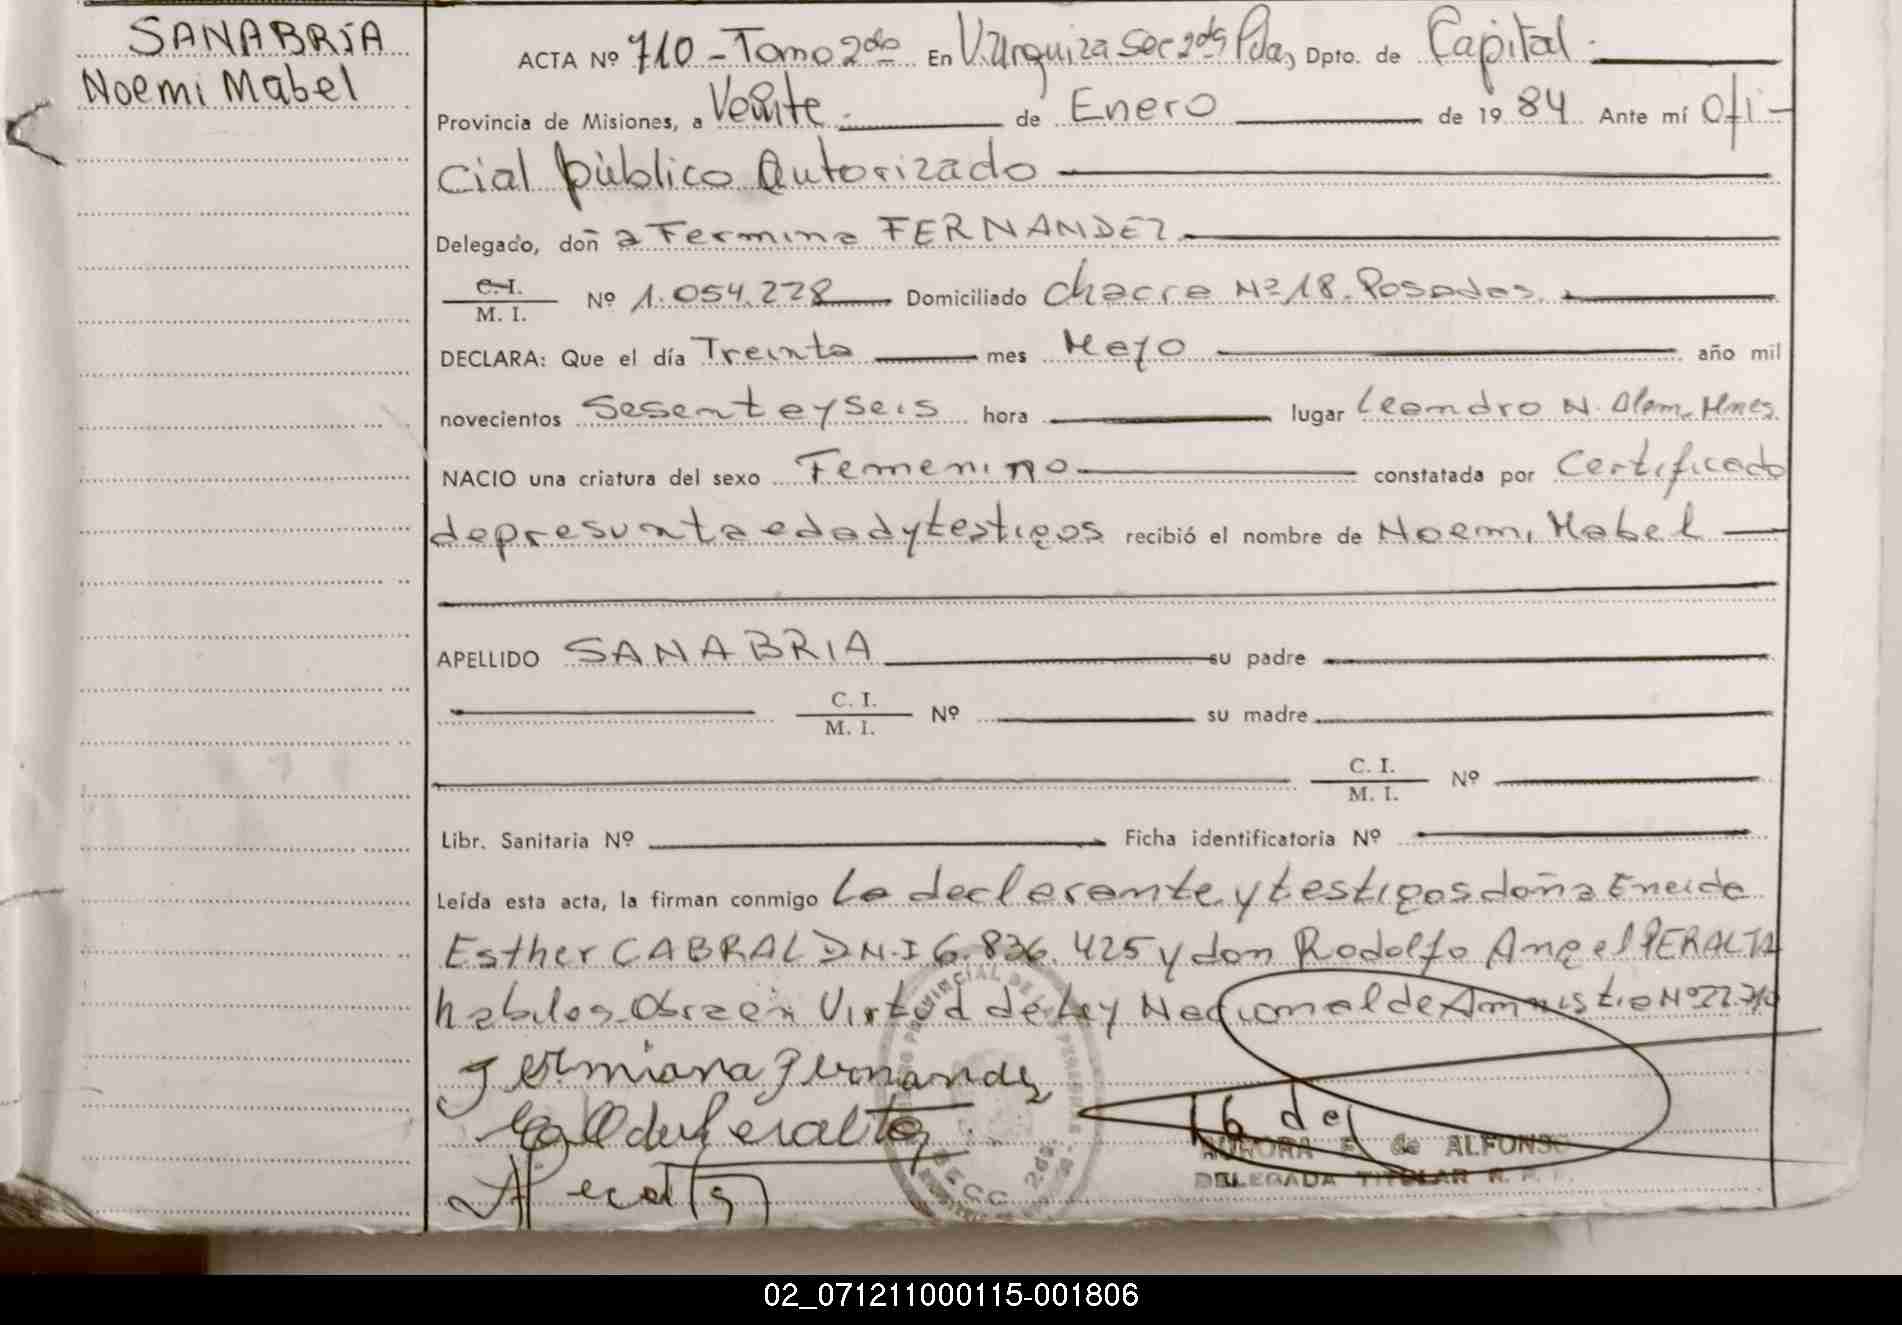 SANABRIA
Noemi Mabel
ACTA Nº 710 - Tomo 2do En V. Urquiza Sec 2da Pdas, Dpto. de Capital.
Provincia de Misiones, a Veinte de Enero de 1984 Ante mí Ofi-
cial público Autorizado
Delegado, doña Fermina FERNANDEZ
C. I.
M. I. Nº 1.054.228 Domiciliado Chacra Nº 18. Posadas.
DECLARA: Que el día Treinta mes Mayo año mil
novecientos Sesenta y Seis hora lugar Leandro N. Alem. Mnes.
NACIO una criatura del sexo Femenino constatada por Certificado
de presunta edad y testigos recibió el nombre de Noemi Mabel
APELLIDO SANABRIA su padre
C. I.
M. I. Nº su madre
C. I.
M. I. Nº
Libr. Sanitaria Nº Ficha identificatoria Nº
Leída esta acta, la firman conmigo La declarante y testigos doña Eneida
Esther CABRAL D.N.I 6.836.425 y don Rodolfo Angel PERALTA
habiles. Obra en Virtud de Ley Nacional de Amnistia Nº 22.710
Fermiana Fernandez
de Peralta
Peralta
AURORA E. de ALFONSO
DELEGADA TITULAR R. P.
02_071211000115-001806